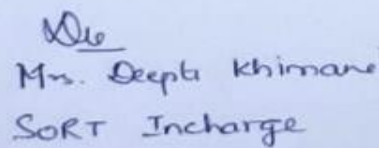 Mrs. Deepti Khimane
SORT Incharge